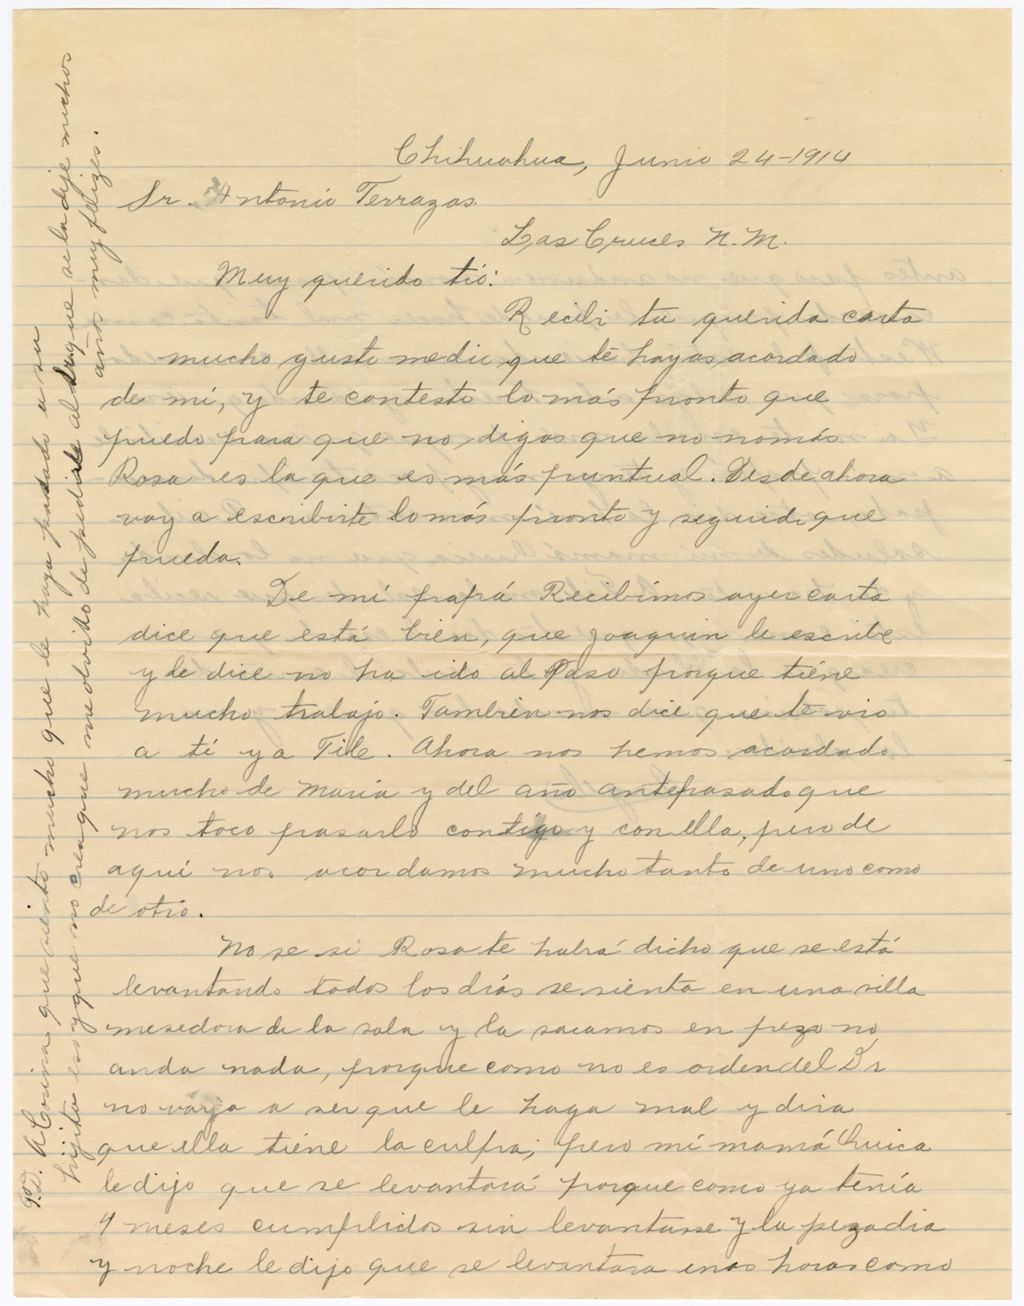 Chihuahua, Junio 24-1914
Sr. Antonio Terrazas.
Las Cruces N.M.
Muy querido tió:
Recibí tu querida carta
mucho gusto medió que té hayas acordado
de mí, y te contesto lo más pronto que
puedo para que no digas que no nomás
Rosa es la que es más puntual. Desde ahora
voy a escribirte lo más pronto y seguido que
pueda.
De mí papá Recibimos ayer carta
dice que está bién, que Joaquin le escribe
y le dice no ha ido al Paso porque tiéne
mucho trabajo. También nos dice que te vió
a tí y a Tile. Ahora nos hemos acordado
mucho de María y del año antepasado que
nos toco pasarlo contigo y con ella, pero de
aquí nos acordamos mucho tanto de uno como
de otro.
No se si Rosa te habrá dicho que se está
levantando todos los días se sienta en una silla
mesedora de la sala y la sacamos en pezo no
anda nada, porque como no es orden del Dr
no vaya a ser que le haga mal y dira
que ella tiéne la culpa; pero mí mamá Chuica
le dijo que se levantará porque como ya tenía
4 meses cumplidos sin levantarse y la pezadia
y noche le dijo que se levantara unas horas como
P.D. A Corina que siento mucho que le haya pasado a su
hijita eso y que no crea que me olvido de pedirle al que se la deje muchos
años muy felizes.